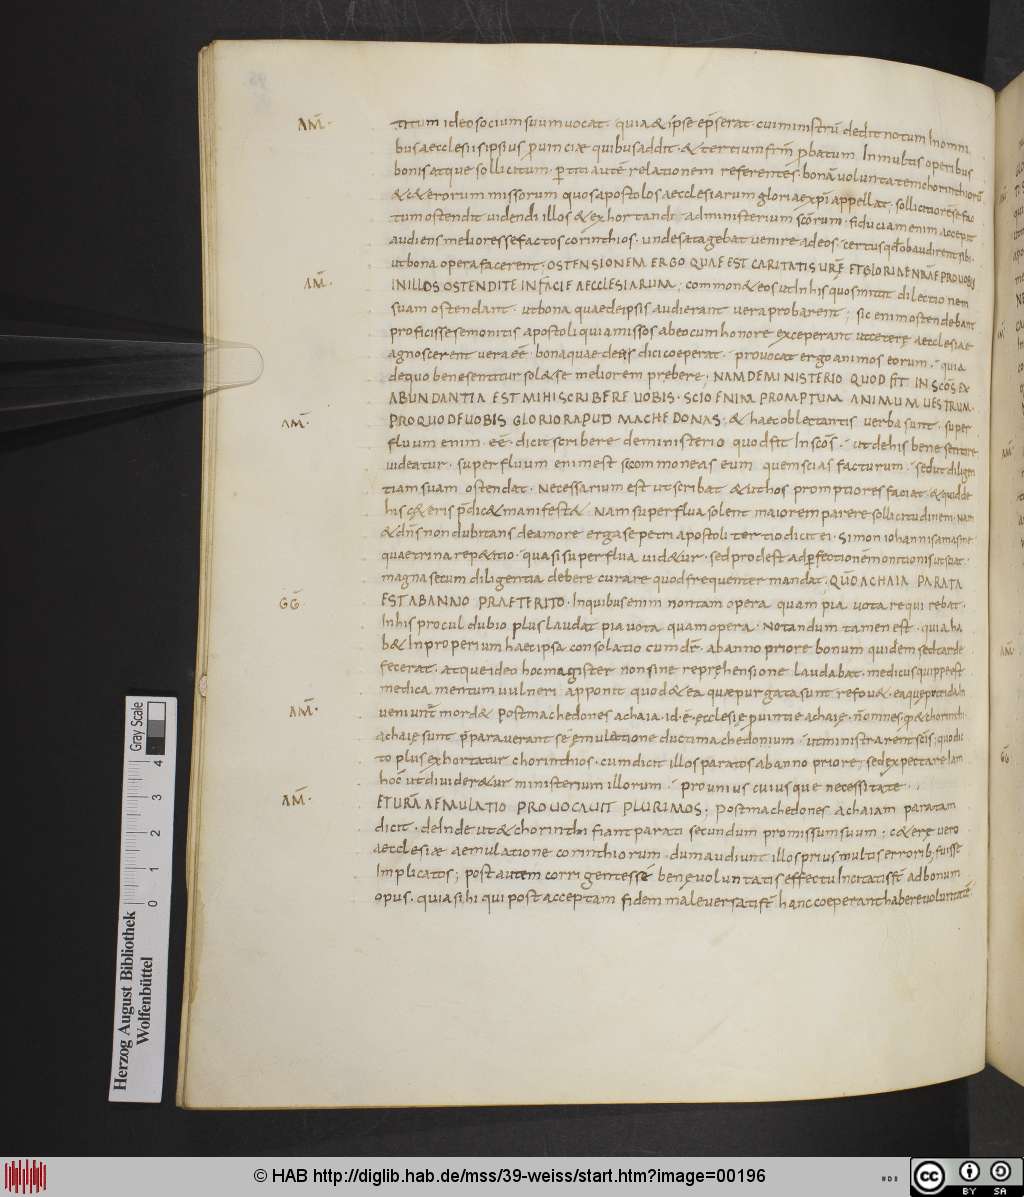 AM̄·
titum ideo socium suum uocat· quia & ipse ep̄s erat· cui ministrū dedit notum In omni
bus aecclesiis ipsius ꝓuinciæ quibus addit· & tertium frm̄ ꝓbatum In multis operibus
bonis atque sollicitum· ꝑ titi autē relationem referentes· bonā uoluntatem chorinthiorū
& ceterorum missorum quos apostolos aecclesiarum gloriae xp̄i appellat; sollicitiorē se fac
tum ostendit uidendi illos & exhortandi administerium sc̄orum· fiduciam enim accepit
audiens meliores se factos corinthios· unde satagebat uenire ad eos· certus qd̄ obaudirent sibi·
ut bona opera facerent· OSTENSIONEM ERGO QUAE EST CARITATIS UR̄E ET GLORIAE NR̄AE PRO UOBIS
AM̄·
IN ILLOS OSTENDITE IN FACIE AECCLESIARUM; common& eos ut In his quos mittit dilectionem
suam ostendant· ut bona quae de ipsis audierant uera probarent; sic enim ostendebant
proficisse se monitis apostoli quia missos ab eo cum honore exceperant ut ceterę aecclesiae
agnoscerent uera eē· bona quae de eis dici coeperat· prouocat ergo animos eorum· quia
de quo bene sentitur sol& se meliorem prebere; NAM DE MINISTERIO QUOD FIT IN SCO᷒S EX
ABUNDANTIA EST MIHI SCRIBERE UOBIS· SCIO ENIM PROMPTUM ANIMUM UESTRUM·
AM̄·
PRO QUO DE UOBIS GLORIOR APUD MACHEDONAS· & haec oblectantis uerba sunt· super
fluum enim· eē· dicit scribere de ministerio quod fit In scōs· ut de his bene sentire
uideatur· superfluum enim est si commoneas eum quem scias facturum· sed ut diligen
tiam suam ostendat· necessarium est ut scribat & ut hos promptiores faciat· & quid de
his c&eris p̄dic& manifest&· Nam superflua solent maiorem parere sollicitudinem· Nam
& dn̄s non dubitans de amore erga se petri apostoli tertio dicit ei· Simon iohannis amas me
quae trina rep&itio· quasi superflua uid&ur· sed prodest ad ꝑfectionē monitionis ut sciat
magna secum diligentia debere curare quod frequenter mandat; QUŌ ACHAIA PARATA
GḠ·
EST AB ANNO PRAETERITO· In quibus enim non tam opera quam pia uota requirebat·
In his procul dubio plus laudat pia uota quam opera· Notandum tamen est· quia ha
b& In properium haec ipsa consolatio cum dr̄· ab anno priore bonum quidem sed tarde
fecerat· atque ideo hoc magister non sine reprehensione laudabat· medicus quippe est
medicamentum uulneri apponit quod & ea quae purgata sunt refou&· ea quę putrida In
AM̄·
ueniunt᷒ mord& postmachedones achaia· id·ē· ecclesię ꝓuintię achaię· n̄ omnes· q̄ & chorinthi·
achaię sunt p̄parauerant sē ęmulatione ducti machedonium· ut ministrarent scīs; quo dic
to plus exhortatur chorinthios· cum dicit illos paratos ab anno priore; sed expectare Iam
hoc ut diuider&ur ministerium illorum· pro unius cuiusque necessitate·
AM̄·
ET UR̄A AEMULATIO PROUOCAUIT PLURIMOS; Postmachedones achaiam paratam
dicit· deInde ut & chorinthi fiant parati secundum promissum suum; c&erę uero
aecclesiæ aemulatione corinthiorum· dum audiunt illos prius multis errorib; fuisse
Implicatos; post autem corrigentes sē benę uoluntatis effectu Incitati st̄ ad bonum
opus· quia si hi qui post acceptam fidem male uersati st̄ hanc coeperant habere uoluntatē
Gray Scale
0 1 2 3 4
Herzog August Bibliothek
Wolfenbüttel
© HAB http://diglib.hab.de/mss/39-weiss/start.htm?image=00196
cc BY SA